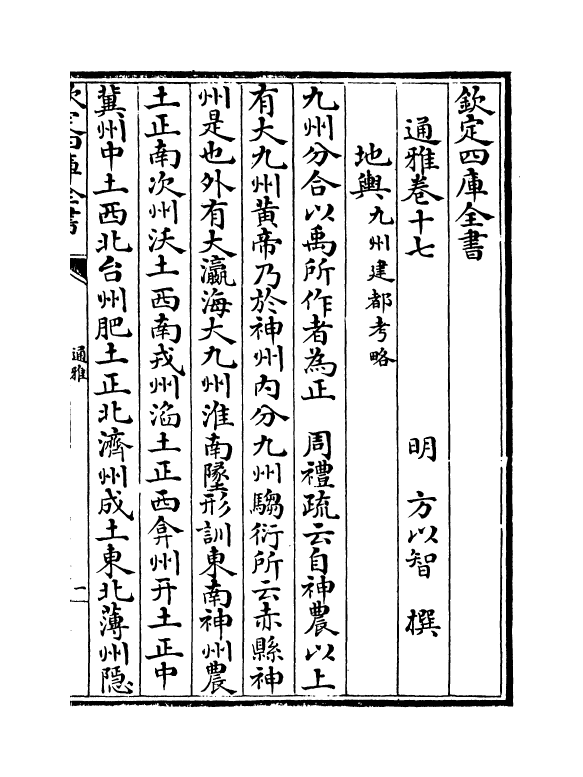 欽定四庫全書
通雅卷十七
明 方以智 撰
地輿九州建都考略
九州分合以禹所作者為正 周禮疏云自神農以上
有大九州黄帝乃於神州内分九州騶衍所云赤縣神
州是也外有大瀛海大九州淮南墬形訓東南神州農
土正南次州沃土西南戎州滔土正西弇州幵土正中
冀州中土西北台州肥土正北濟州成土東北薄州隱
欽定四庫全書
通雅